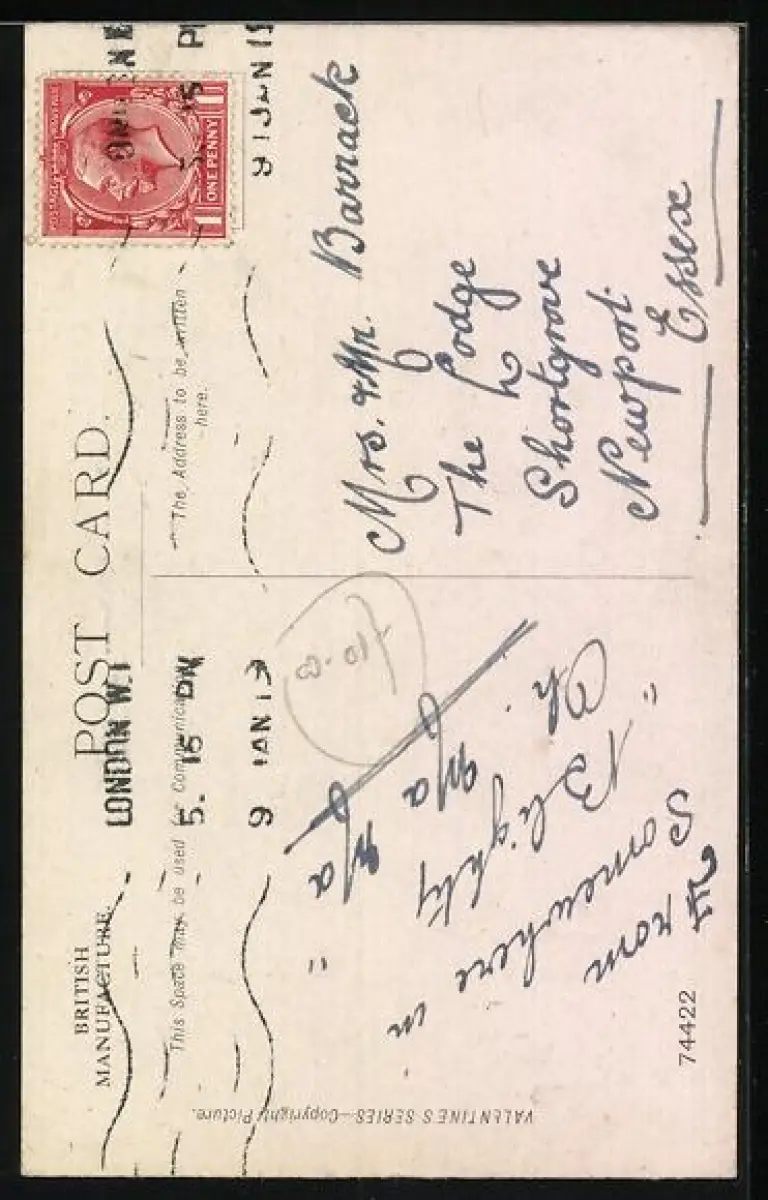 POST CARD.
BRITISH
MANUFACTURE.
This Space may be used for Communication
The Address to be written
here.
LONDON W.1
5. 15 PM
9 JAN 19
ONE PENNY
Mrs. & Mr. Barrack
The Lodge
Shortgrove
Newport.
Essex
From
Somewhere in
Blighty
" Oh. Ma Ma "
74422
VALENTINE'S SERIES—Copyright Picture.